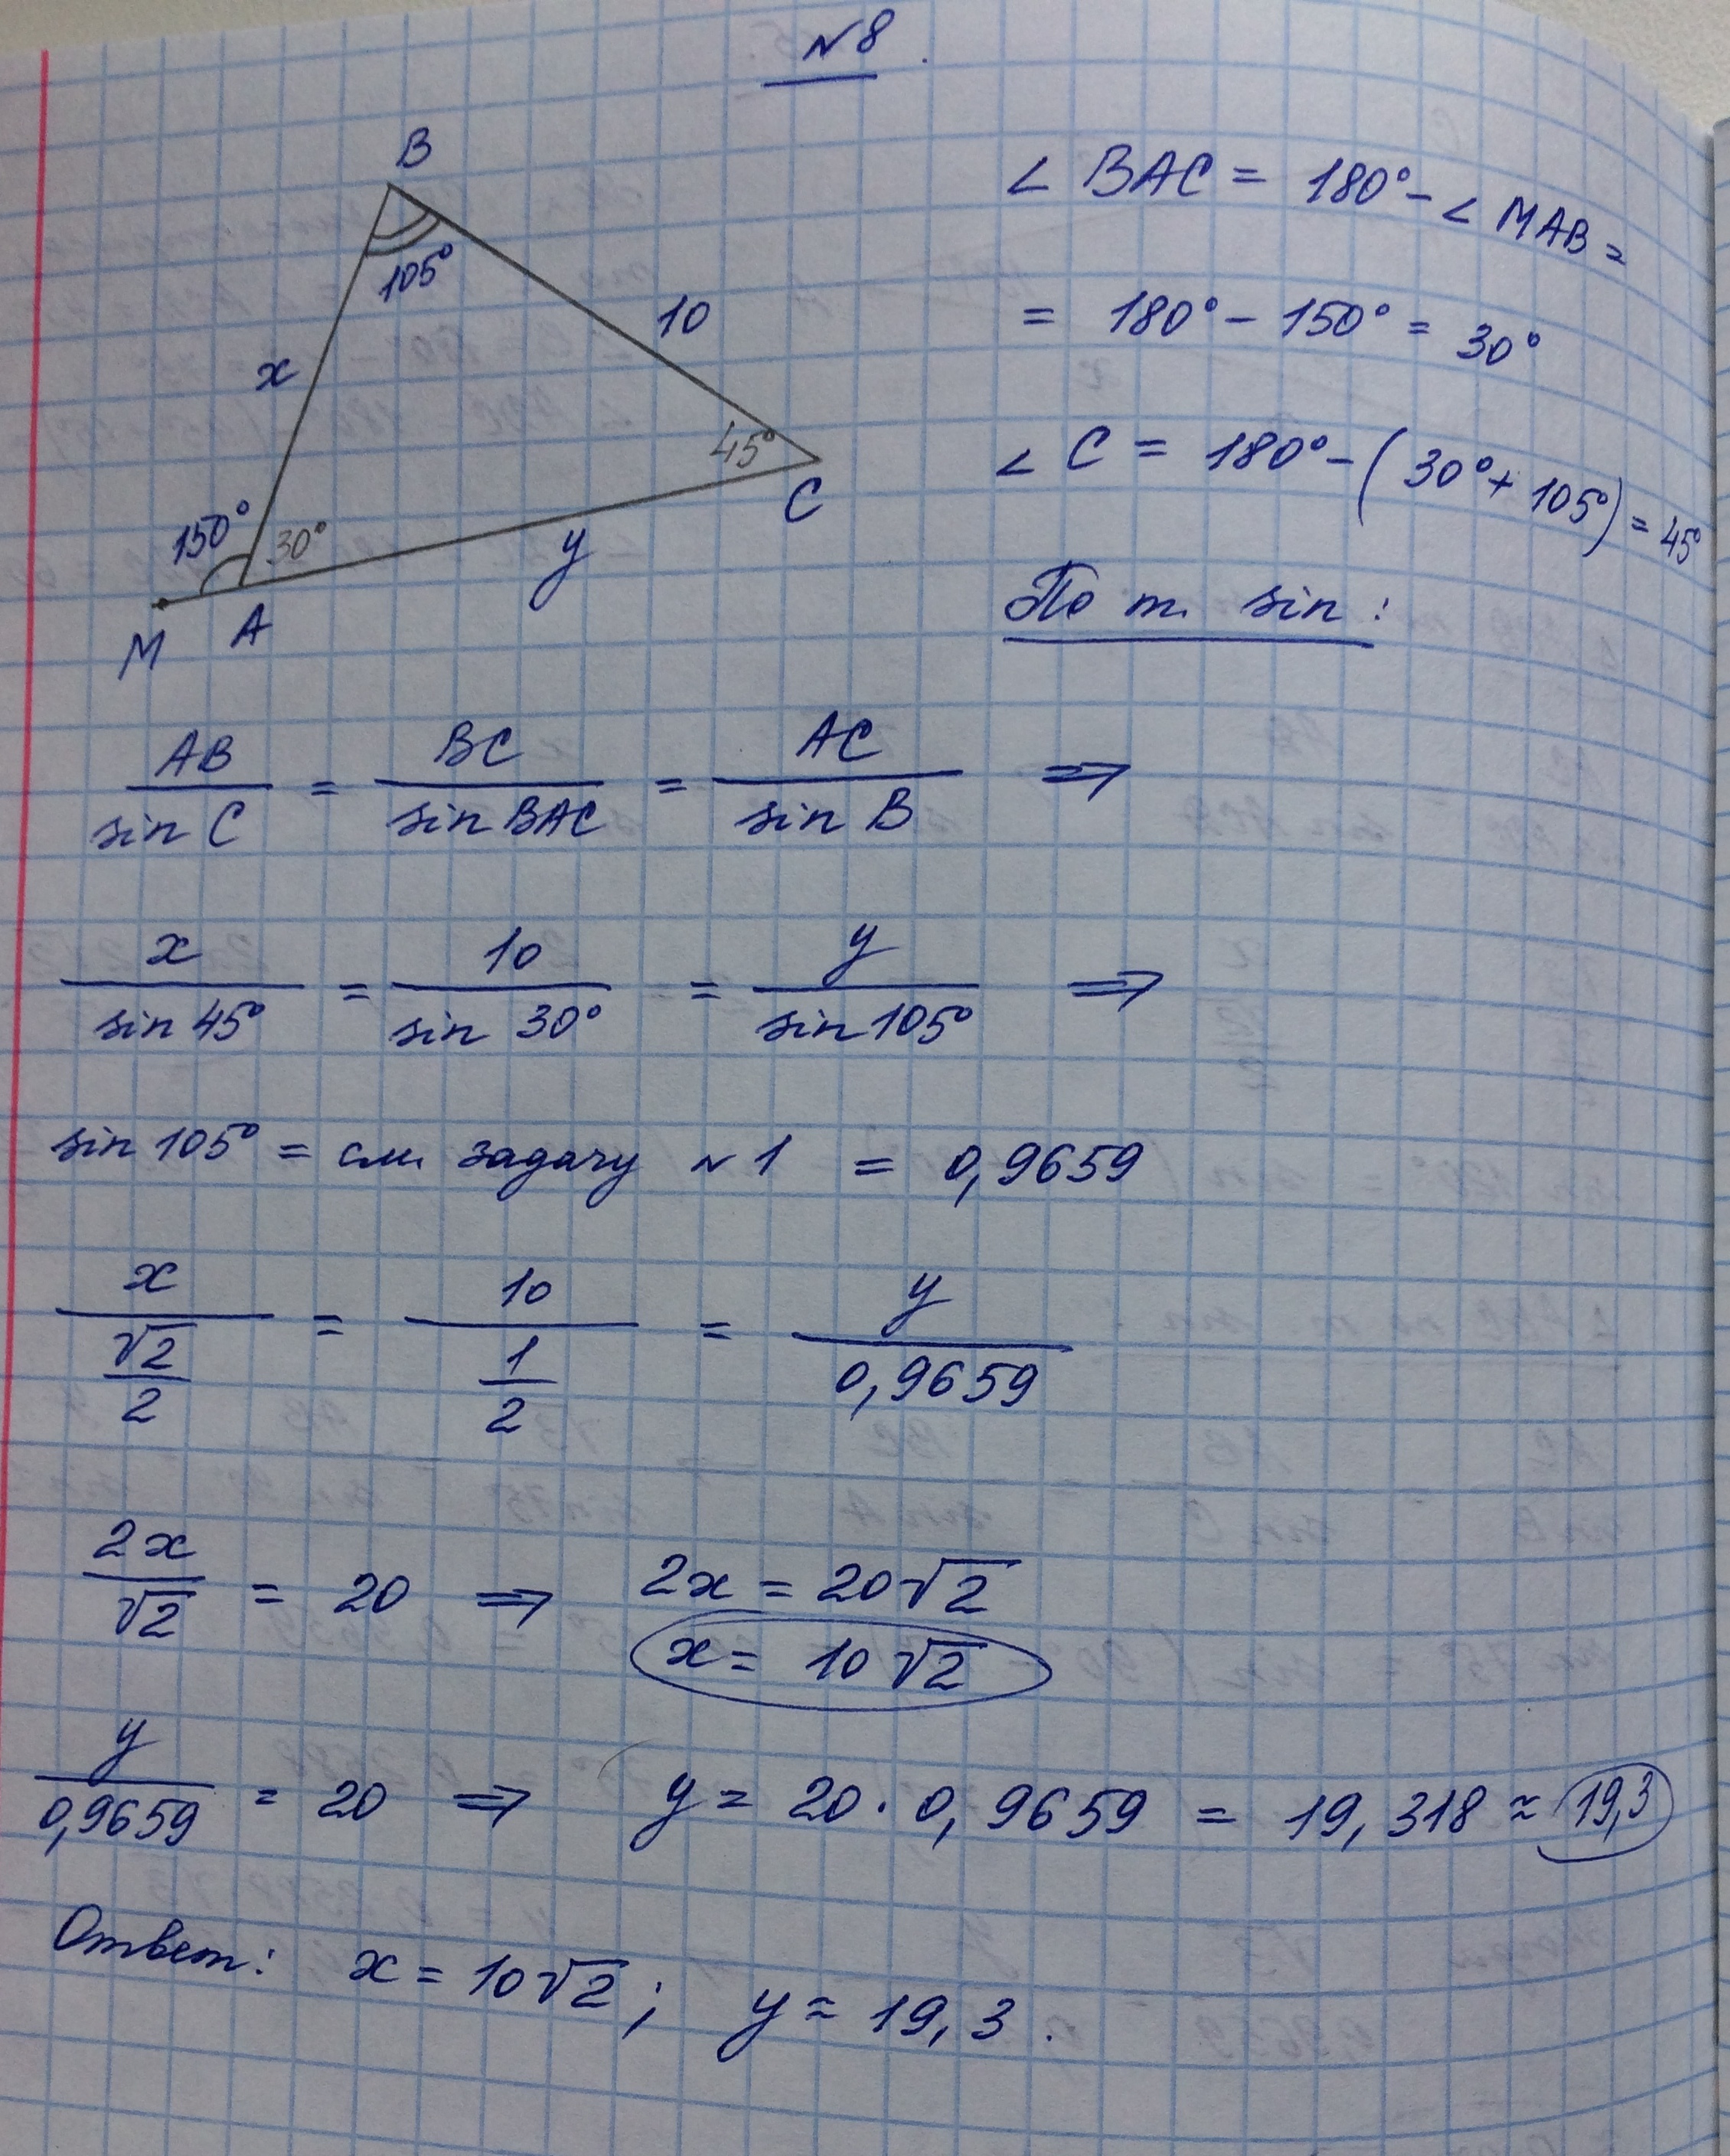 №8.
B
105°
10
x
45°
C
150°
30°
y
M A
∠ BAC = 180° - ∠ MAB =
= 180° - 150° = 30°
∠ C = 180° - (30° + 105°) = 45°
По т. sin:
AB/sin C = BC/sin BAC = AC/sin B ⇒
x/sin 45° = 10/sin 30° = y/sin 105° ⇒
sin 105° = см. задачу №1 = 0,9659
x/(√2/2) = 10/(1/2) = y/0,9659
2x/√2 = 20 ⇒ 2x = 20√2
x = 10√2
y/0,9659 = 20 ⇒ y = 20 · 0,9659 = 19,318 ≈ 19,3
Ответ: x = 10√2; y ≈ 19,3.